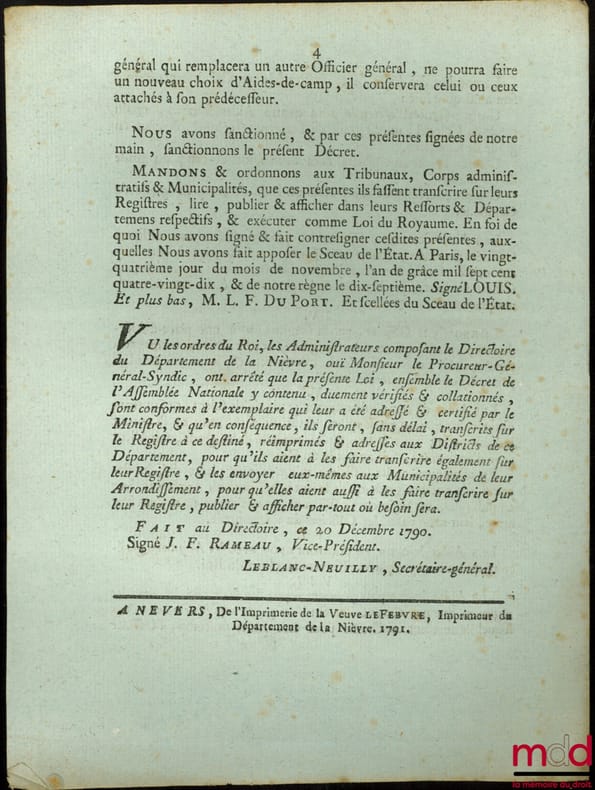 4
général qui remplacera un autre Officier général, ne pourra faire
un nouveau choix d'Aides-de-camp, il conſervera celui ou ceux
attachés à ſon prédéceſſeur.
NOUS avons ſanctionné, & par ces préſentes ſignées de notre
main, ſanctionnons le préſent Décret.
MANDONS & ordonnons aux Tribunaux, Corps adminiſ-
tratifs & Municipalités, que ces préſentes ils faſſent tranſcrire ſur leurs
Regiſtres, lire, publier & afficher dans leurs Reſſorts & Dépar-
temens reſpectifs, & exécuter comme Loi du Royaume. En foi de
quoi Nous avons ſigné & fait contreſigner ceſdites préſentes, aux-
quelles Nous avons fait appoſer le Sceau de l'État. A Paris, le vingt-
quatrième jour du mois de novembre, l'an de grâce mil ſept cent
quatre-vingt-dix, & de notre règne le dix-ſeptième. Signé LOUIS.
Et plus bas, M. L. F. DU PORT. Et ſcellées du Sceau de l'État.
VU les ordres du Roi, les Adminiſtrateurs compoſant le Directoire
du Département de la Nièvre, ouï Monſieur le Procureur-Gé-
néral-Syndic, ont arrêté que la préſente Loi, enſemble le Décret de
l'Aſſemblée Nationale y contenu, duement vérifiés & collationnés,
ſont conformes à l'exemplaire qui leur a été adreſſé & certifié par le
Miniſtre, & qu'en conſéquence, ils ſeront, ſans délai, tranſcrits ſur
le Regiſtre à ce deſtiné, réimprimés & adreſſés aux Diſtricts de ce
Département, pour qu'ils aient à les faire tranſcrire également ſur
leur Regiſtre, & les envoyer eux-mêmes aux Municipalités de leur
Arrondiſſement, pour qu'elles aient auſſi à les faire tranſcrire ſur
leur Regiſtre, publier & afficher par-tout où beſoin ſera.
FAIT au Directoire, ce 20 Décembre 1790.
Signé J. F. RAMEAU, Vice-Préſident.
LEBLANC-NEUILLY, Secrétaire-général.
A NEVERS, De l'Imprimerie de la Veuve LEFEBVRE, Imprimeur du
Département de la Nièvre. 1791.
mdd
la mémoire du droit